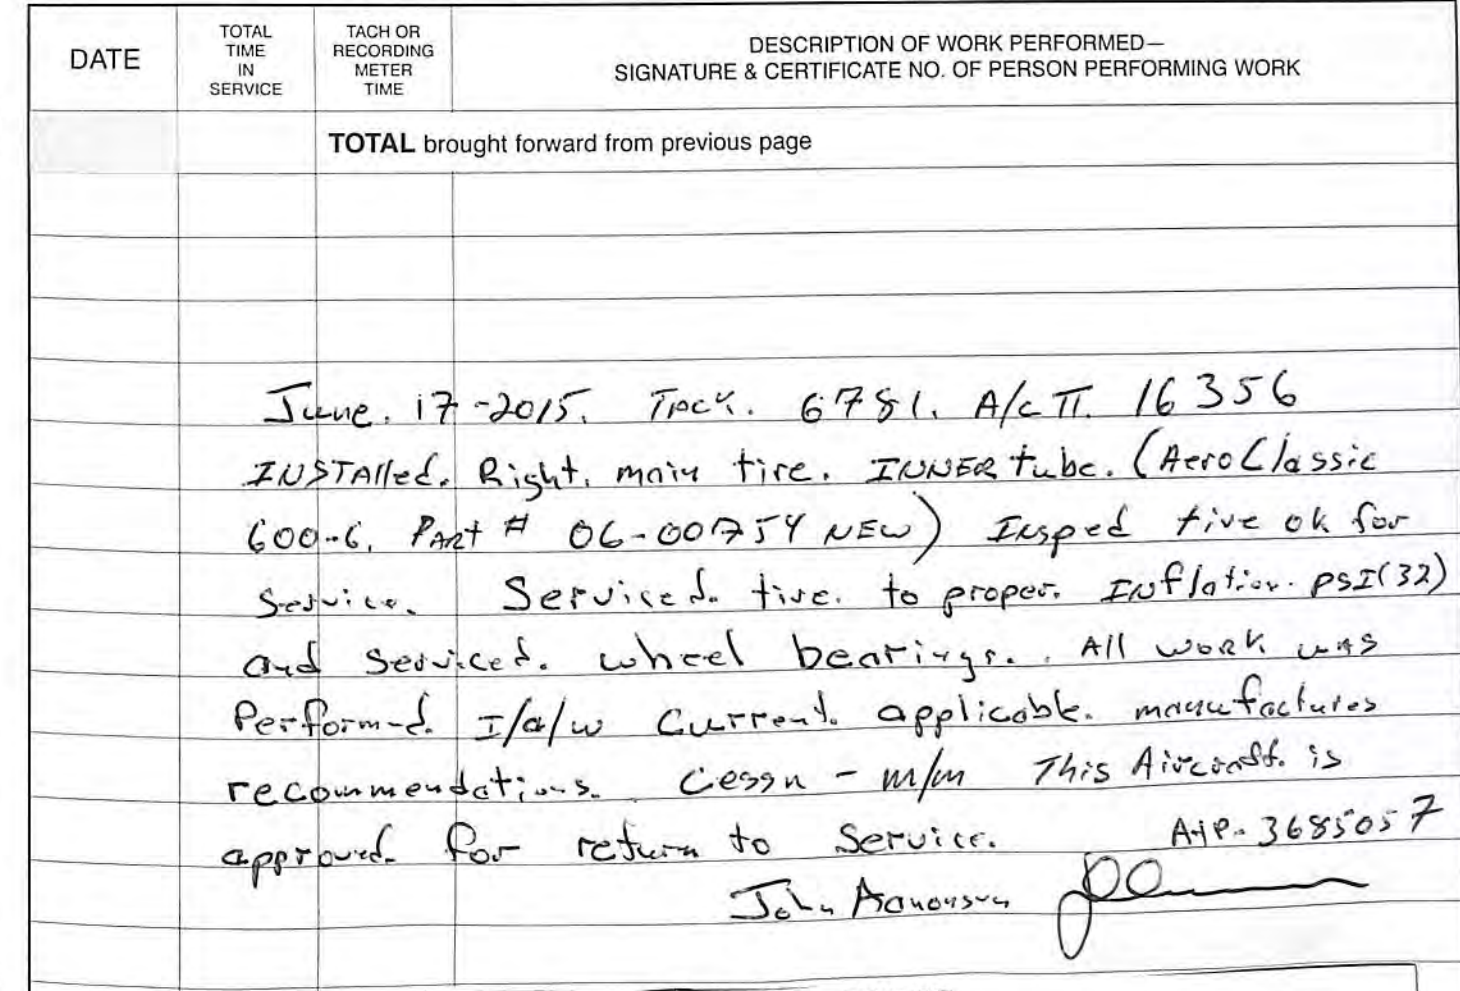 DATE
TOTAL
TIME
IN
SERVICE
TACH OR
RECORDING
METER
TIME
DESCRIPTION OF WORK PERFORMED—
SIGNATURE & CERTIFICATE NO. OF PERSON PERFORMING WORK
TOTAL brought forward from previous page
June. 17-2015. Tach. 6781. A/c TT. 16356
INSTAlled. Right. main tire. INNER tube. (AeroClassic
600-6. PArt # 06-00754 NEW) Insped tire ok for
Service. Serviced. tire. to proper. INflation. psI(32)
and serviced. wheel bearings. All work was
Performed. I/a/w Current. applicable. manufactures
recommendations. Cessn - m/m This Aircraft. is
approved. for return to Service. A+P. 3685057
John